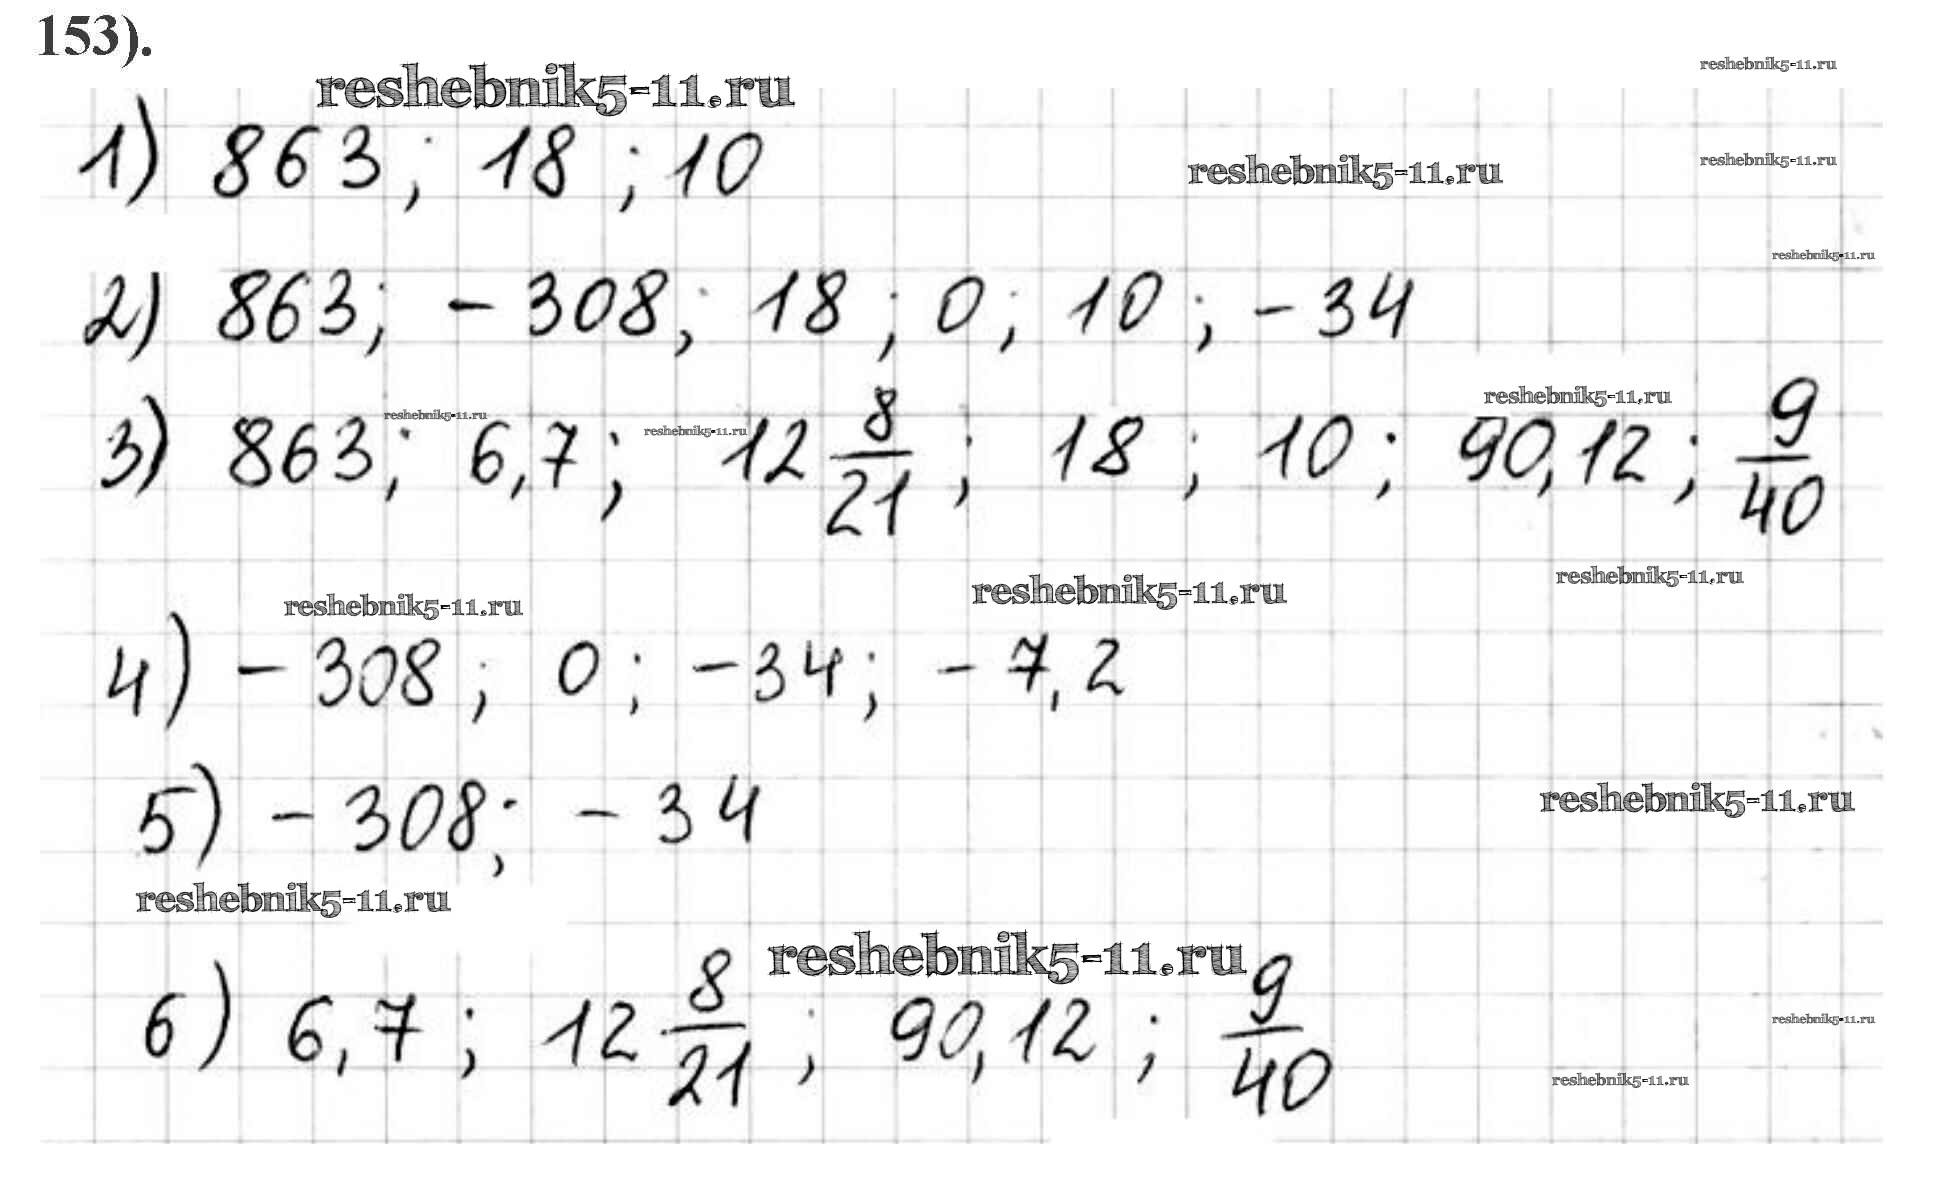 153).
reshebnik5-11.ru
reshebnik5-11.ru
1) 863; 18; 10
reshebnik5-11.ru
reshebnik5-11.ru
reshebnik5-11.ru
2) 863; - 308; 18; 0; 10; - 34
reshebnik5-11.ru
reshebnik5-11.ru
reshebnik5-11.ru
3) 863; 6,7; 12 8/21; 18; 10; 90,12; 9/40
reshebnik5-11.ru
reshebnik5-11.ru
reshebnik5-11.ru
4) - 308; 0; - 34; - 7,2
reshebnik5-11.ru
5) - 308; - 34
reshebnik5-11.ru
reshebnik5-11.ru
6) 6,7; 12 8/21; 90,12; 9/40
reshebnik5-11.ru
reshebnik5-11.ru